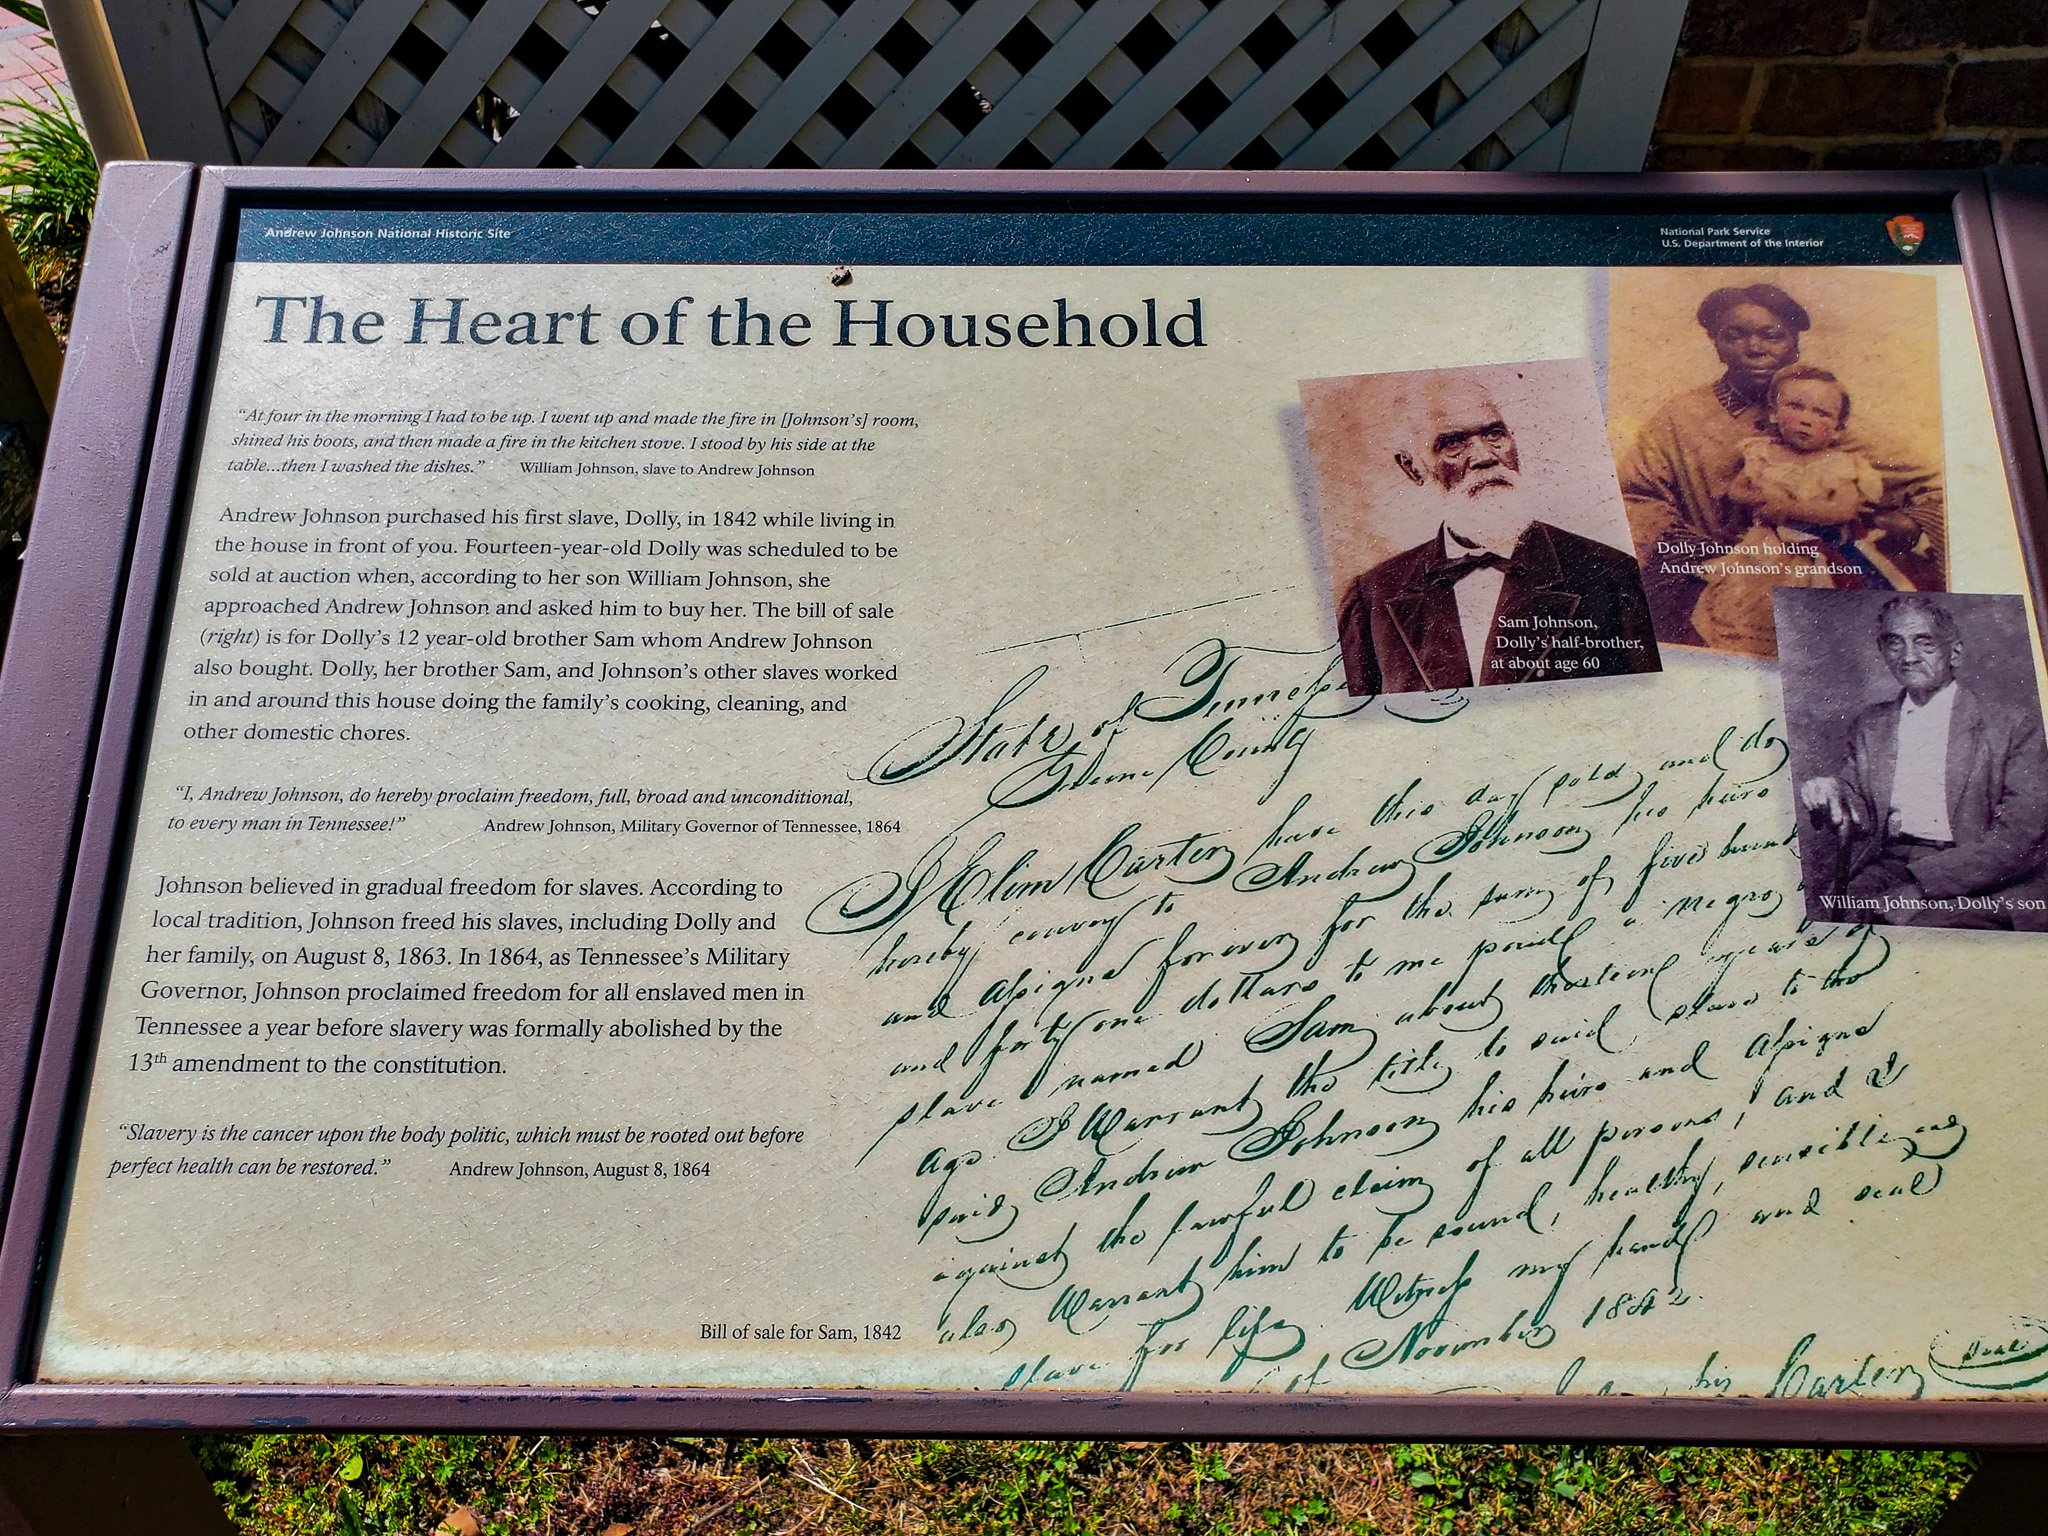 Andrew Johnson National Historic Site
National Park Service
U.S. Department of the Interior
The Heart of the Household
“At four in the morning I had to be up. I went up and made the fire in [Johnson’s] room,
shined his boots, and then made a fire in the kitchen stove. I stood by his side at the
table...then I washed the dishes.” William Johnson, slave to Andrew Johnson
Andrew Johnson purchased his first slave, Dolly, in 1842 while living in
the house in front of you. Fourteen-year-old Dolly was scheduled to be
sold at auction when, according to her son William Johnson, she
approached Andrew Johnson and asked him to buy her. The bill of sale
(right) is for Dolly’s 12 year-old brother Sam whom Andrew Johnson
also bought. Dolly, her brother Sam, and Johnson’s other slaves worked
in and around this house doing the family’s cooking, cleaning, and
other domestic chores.
“I, Andrew Johnson, do hereby proclaim freedom, full, broad and unconditional,
to every man in Tennessee!” Andrew Johnson, Military Governor of Tennessee, 1864
Johnson believed in gradual freedom for slaves. According to
local tradition, Johnson freed his slaves, including Dolly and
her family, on August 8, 1863. In 1864, as Tennessee’s Military
Governor, Johnson proclaimed freedom for all enslaved men in
Tennessee a year before slavery was formally abolished by the
13th amendment to the constitution.
“Slavery is the cancer upon the body politic, which must be rooted out before
perfect health can be restored.” Andrew Johnson, August 8, 1864
Bill of sale for Sam, 1842
Dolly Johnson holding
Andrew Johnson’s grandson
Sam Johnson,
Dolly’s half-brother,
at about age 60
William Johnson, Dolly’s son
State of Tennessee
Greene County
I Elim Carter have this day sold and do
hereby convey to Andrew Johnson his heirs
and assigns forever for the sum of five
and forty one dollars to me paid a negro
slave named Sam about thirteen years of
age I Warrant the title to said slave to the
said Andrew Johnson his heirs and assigns
against the lawful claim of all persons, and I
also Warrant him to be sound, healthy, sensible and
slave for life Witness my hand and seal
of November 1842.
his Carter Seal